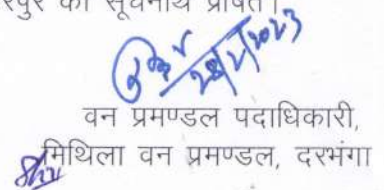 की सूचनार्थ प्रेषित।
28/2/2023
वन प्रमण्डल पदाधिकारी,
मिथिला वन प्रमण्डल, दरभंगा